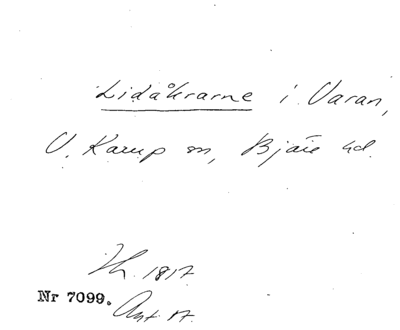 Lidåkrarne i Varan,
V. Karup sn, Bjäre hd.
Th. 1817
Nr 7099. Ant. 17.